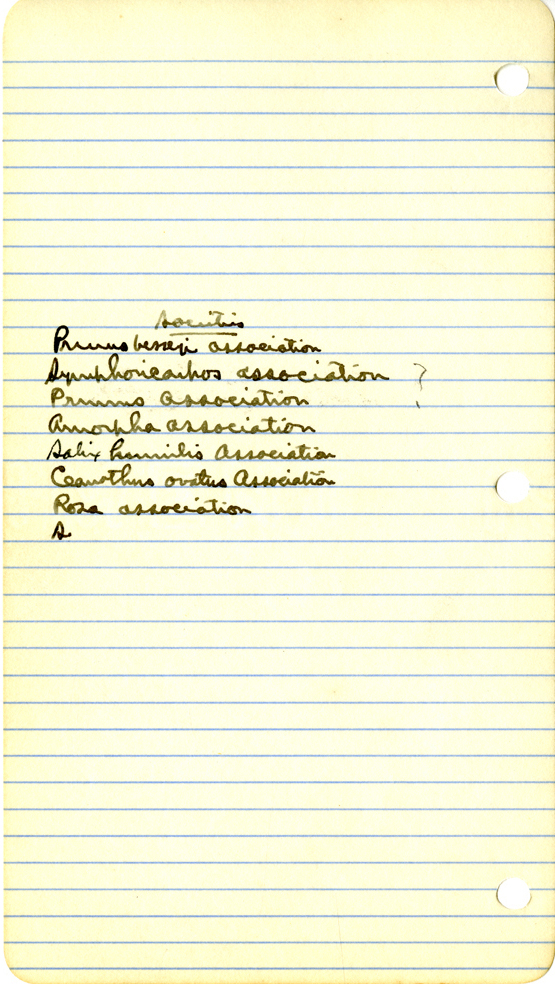 Societies
Prunus besseyi association
Symphoricarpos association ?
Prunus association
Amorpha association
Salix humilis Association
Ceanothus ovatus Association
Rosa association
S